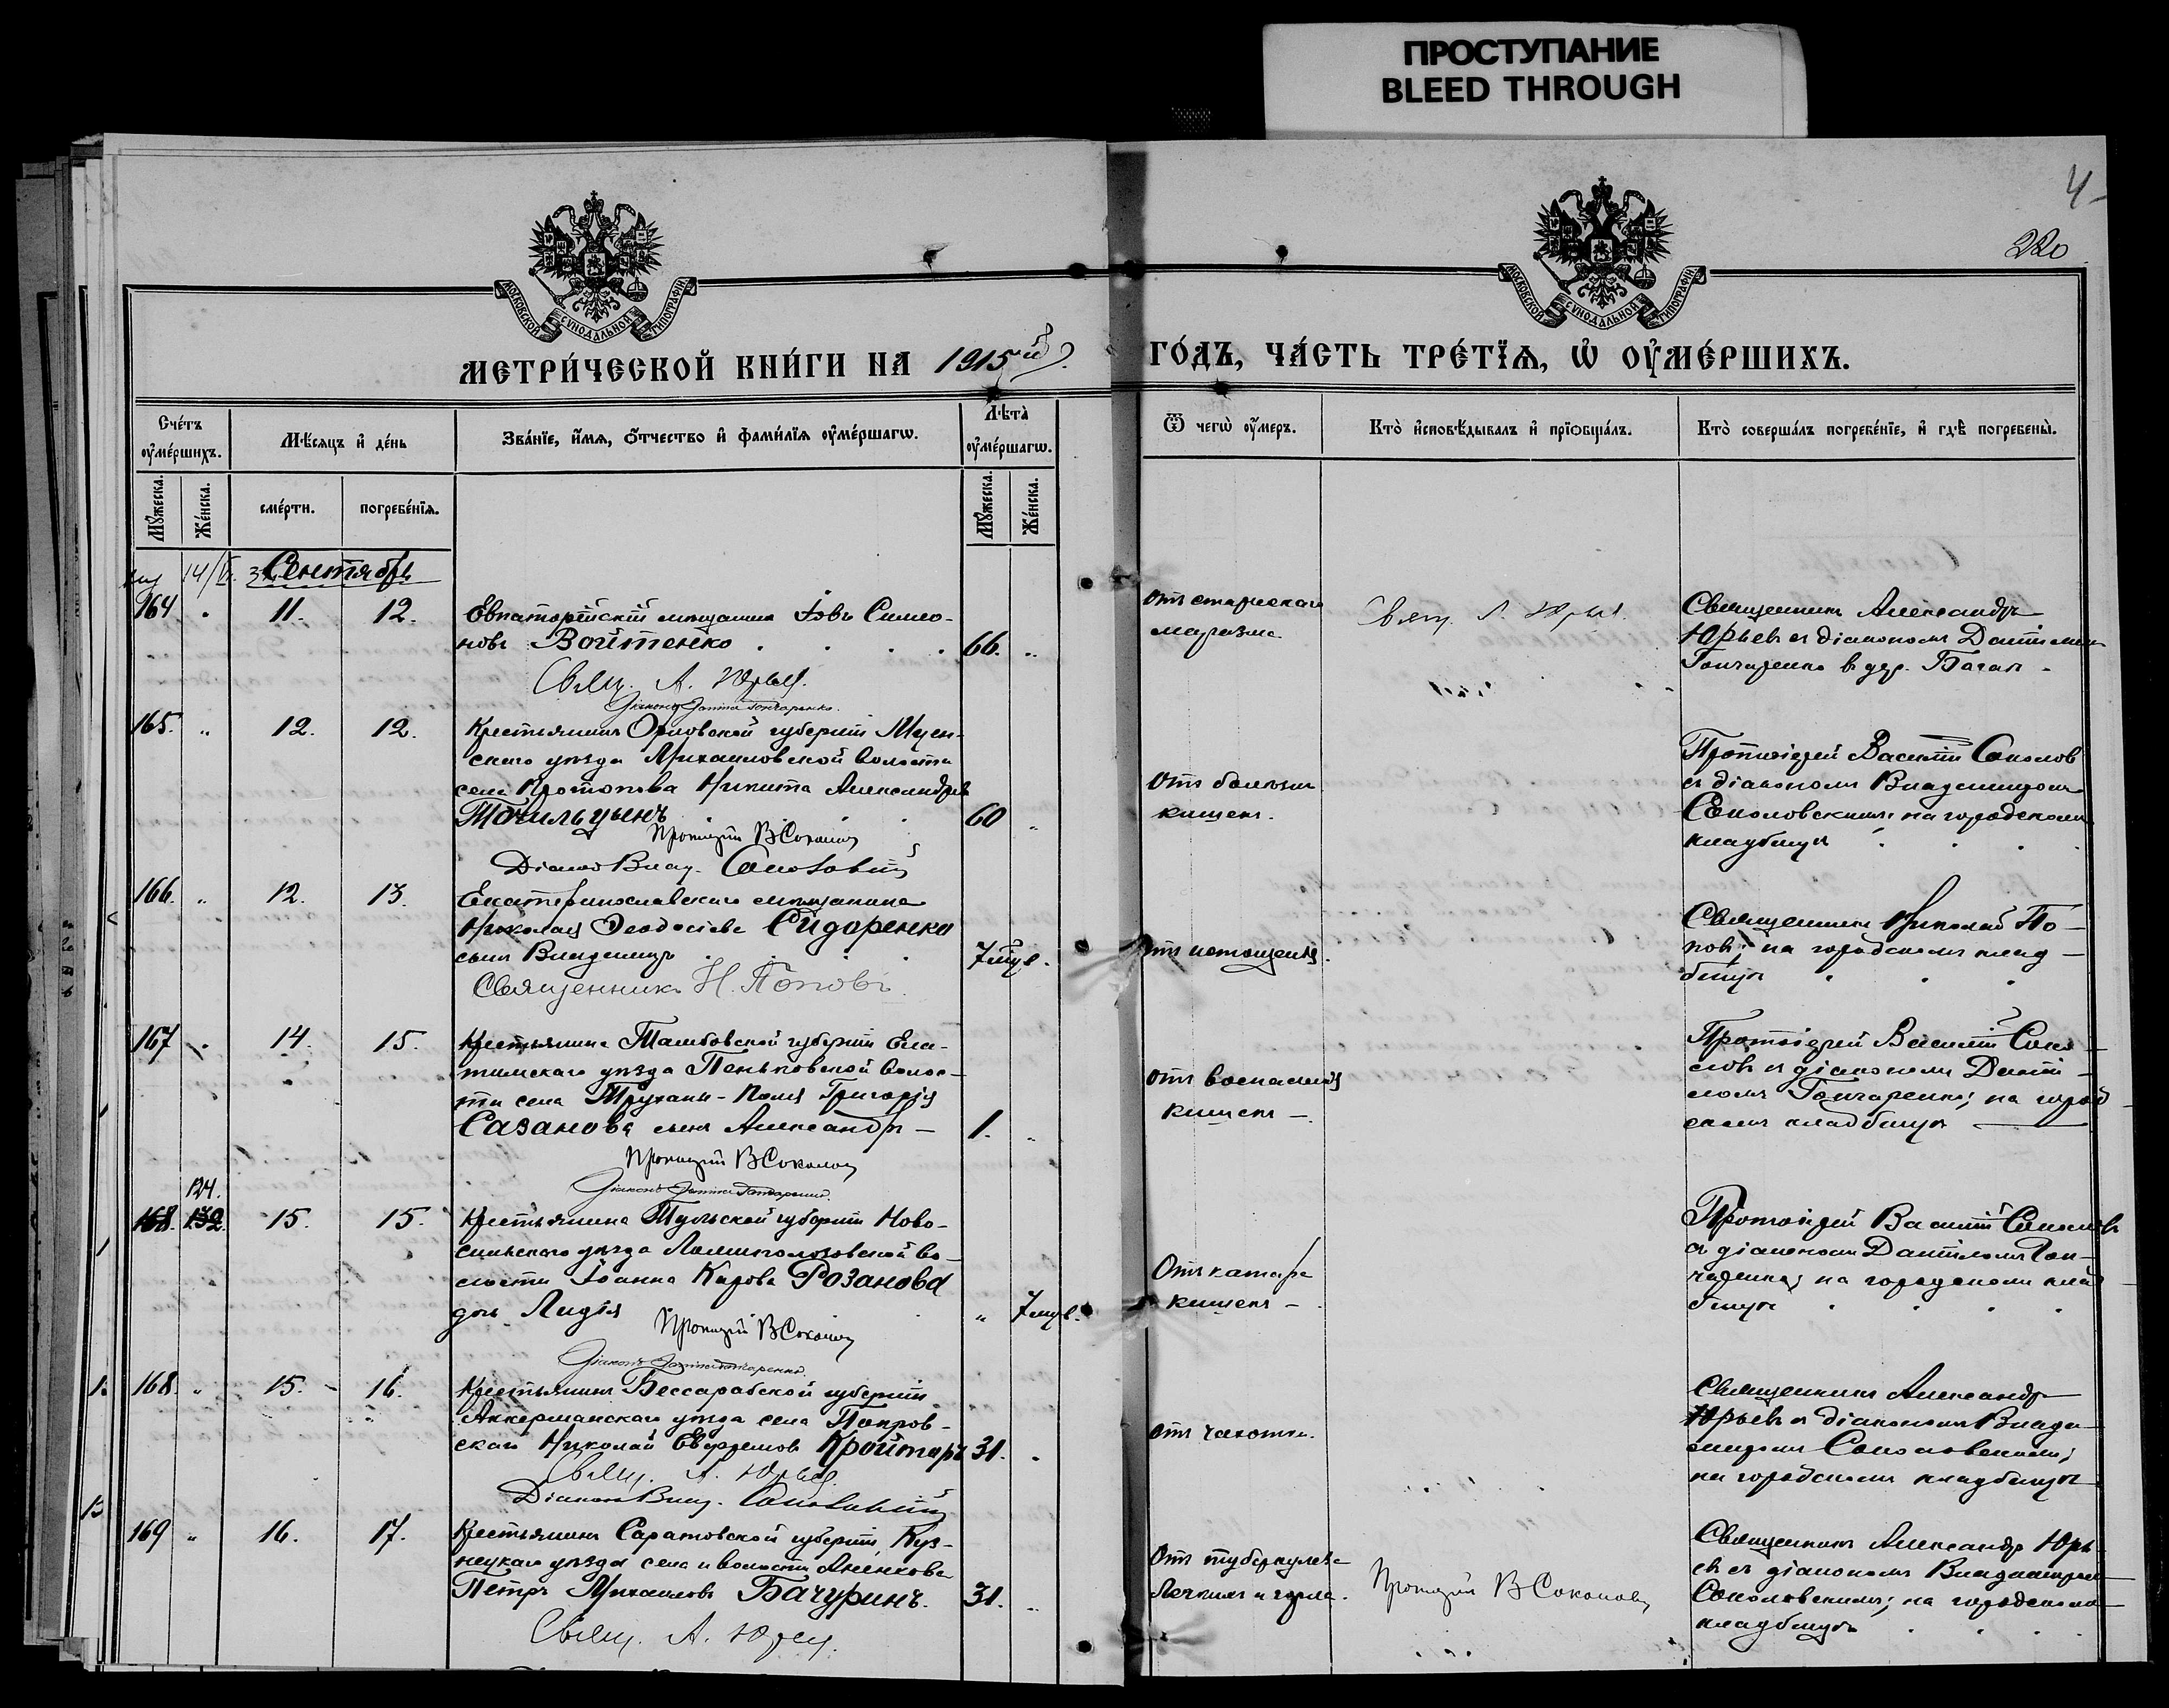 ПРОСТУПАНИЕ
BLEED THROUGH
4
220
МОСКОВСКОЙ СУНОДАЛЬНОЙ ТИПОГРАФІИ
МОСКОВСКОЙ СУНОДАЛЬНОЙ ТИПОГРАФІИ
МЕТРИ́ЧЕСКОЙ КНИ́ГИ НА 1915й
ГО́ДЪ, ЧА́СТЬ ТРЕ́ТЇѦ, Ѡ҆ ОУ҆МЕ́РШИХЪ.
Сче́тъ оу҆ме́ршихъ.
Мѣ́сяцъ и҆ де́нь
Зва́нїе, и҆́мѧ, ѻ҆́тчество и҆ фами́лїѧ оу҆ме́ршагѡ.
Лѣ́та оу҆ме́ршагѡ.
Ѿ чегѡ̀ оу҆́меръ.
Кто̀ и҆сповѣ́дывалъ и҆ прїѡбща́лъ.
Кто̀ соверша́лъ погребе́нїе, и҆ гдѣ̀ погребены̀.
Мꙋ́жеска.
Же́нска.
сме́рти.
погребе́нїѧ.
Мꙋ́жеска.
Же́нска.
Сентябрь
164 11. 12.
Евпаторійскій мѣщанинъ Іовъ Симео-
новъ Войтенко 66.
Свящ. А. Юрьев
Діаконъ Даніил Гончаренко.
Отъ старческаго
маразма.
Свящ. А. Юрьев.
Священникъ Александръ
Юрьевъ съ діакономъ Даніиломъ
Гончаренко в дер. Богай
165. 12. 12.
Крестьянинъ Орловской губерніи Мцен-
скаго уѣзда Михаиловской волости
села Протопова Никита Александровъ
Точильцынъ 60
Протоіерей В Соколов
Діаконъ Влад. Соколовскій
Отъ болѣзни
кишекъ.
Протоіерей Василій Соколов
съ діакономъ Владимиромъ
Соколовскимъ; на городскомъ
кладбищѣ
166. 12. 13.
Екатеринославскаго мѣщанина
Николая Ѳеодосіева Сидоренко
сынъ Владимиръ 7 мѣс.
Священникъ Н. Поповъ
Отъ истощенія.
Священникъ Николай По-
повъ; на городскомъ клад-
бищѣ
167 14. 15.
Крестьянина Тамбовской губерніи Ела-
тимскаго уѣзда Пеньковской волос-
ти села Григорія
Сазанова сынъ Александръ 1.
Протоіерей В Соколов
Діаконъ Даніил Гончаренко.
Отъ воспаленія
кишекъ
Протоіерей Василій Соко-
ловъ съ діакономъ Даніи-
ломъ Гончаренко; на город-
скомъ кладбищѣ
124.
168. 132. 15. 15.
Крестьянина Тульской губерніи Ново-
сильскаго уѣзда во-
лости Іоанна Карпова Розанова
дочь Лидія 7 мѣс.
Протоіерей В Соколов
Діаконъ Даніил Гончаренко.
Отъ катара
кишекъ
Протоіерей Василій Соколовъ
съ діакономъ Даніиломъ Гон-
чаренко; на городскомъ клад-
бищѣ
168. 15. 16.
Крестьянинъ Бессарабской губерніи
Аккерманскаго уѣзда села Покров-
скаго Николай Евфремовъ Кройтаръ 31.
Свящ. А. Юрьев
Діаконъ Влад. Соколовскій
отъ чахотки.
Священникъ Александръ
Юрьевъ съ діакономъ Влади-
миромъ Соколовскимъ;
на городскомъ кладбищѣ
169 16. 17.
Крестьянинъ Саратовской губерніи, Куз-
нецкаго уѣзда села и волости Аненкова
Петръ Михаиловъ Бачуринъ. 31.
Свящ. А. Юрьев.
Отъ туберкулеза
легкихъ и горла.
Протоіерей В Соколовъ
Священникъ Александръ Юрь-
евъ съ діакономъ Владимиромъ
Соколовскимъ; на городскомъ
кладбищѣ